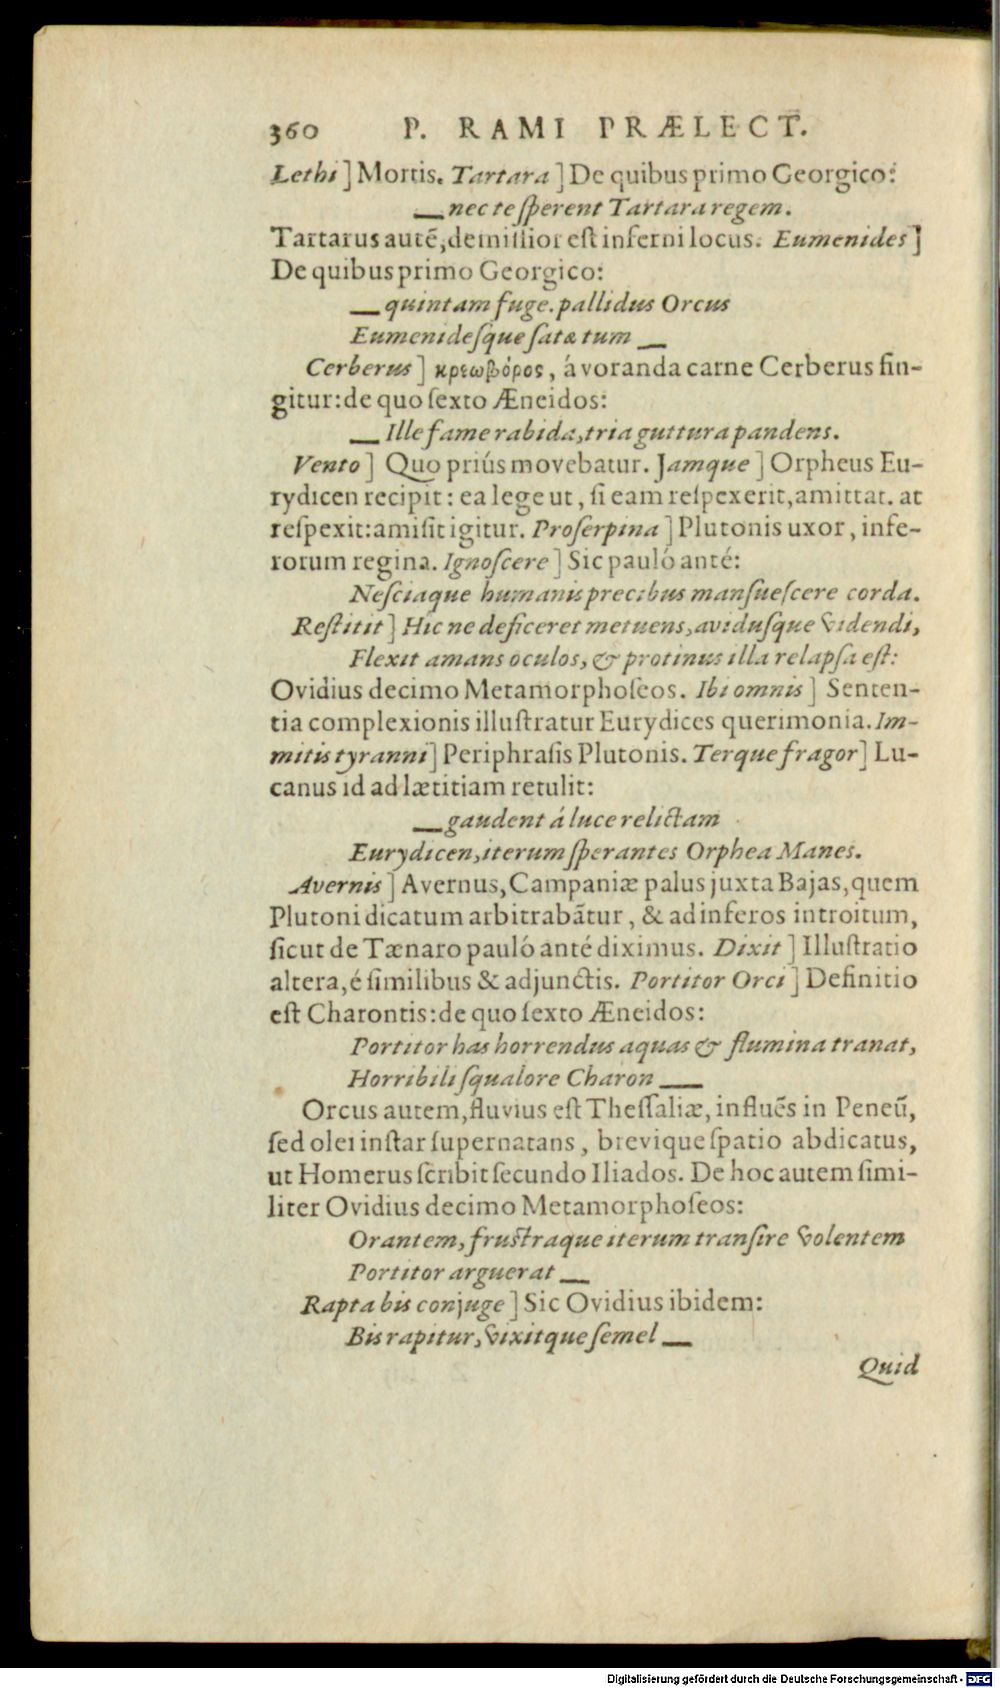 360 P. RAMI PRÆLECT.
Lethi] Mortis. Tartara] De quibus primo Georgico:
__ nec te ſperent Tartara regem.
Tartarus autē, demiſſior eſt inferni locus. Eumenides]
De quibus primo Georgico:
__ quintam fuge. pallidus Orcus
Eumenideſque ſatæ tum __
Cerberus] κρεωβόρος, á voranda carne Cerberus fin-
gitur: de quo ſexto Æneidos:
__ Ille fame rabida, tria guttura pandens.
Vento] Quo priús movebatur. Jamque] Orpheus Eu-
rydicen recipit: ea lege ut, ſi eam reſpexerit, amittat. at
reſpexit: amiſit igitur. Proſerpina] Plutonis uxor, infe-
rorum regina. Ignoſcere] Sic pauló anté:
Neſciaque humanis precibus manſueſcere corda.
Reſtitit] Hic ne deficeret metuens, aviduſque videndi,
Flexit amans oculos, & protinus illa relapſa eſt:
Ovidius decimo Metamorphoſeos. Ibi omnis] Senten-
tia complexionis illuſtratur Eurydices querimonia. Im-
mitis tyranni] Periphraſis Plutonis. Terque fragor] Lu-
canus id ad lætitiam retulit:
__ gaudent á luce relictam
Eurydicen, iterum ſperantes Orphea Manes.
Avernis] Avernus, Campaniæ palus juxta Bajas, quem
Plutoni dicatum arbitrabātur, & ad inferos introitum,
ſicut de Tænaro pauló anté diximus. Dixit] Illuſtratio
altera, é ſimilibus & adjunctis. Portitor Orci] Definitio
eſt Charontis: de quo ſexto Æneidos:
Portitor has horrendus aquas & flumina tranat,
Horribili ſqualore Charon __
Orcus autem, fluvius eſt Theſſaliæ, influēs in Peneū,
ſed olei inſtar ſupernatans, brevique ſpatio abdicatus,
ut Homerus ſcribit ſecundo Iliados. De hoc autem ſimi-
liter Ovidius decimo Metamorphoſeos:
Orantem, fruſtraque iterum tranſire volentem
Portitor arguerat __
Rapta bis conjuge] Sic Ovidius ibidem:
Bis rapitur, vixitque ſemel __
Quid
Digitalisierung gefördert durch die Deutsche Forschungsgemeinschaft - DFG